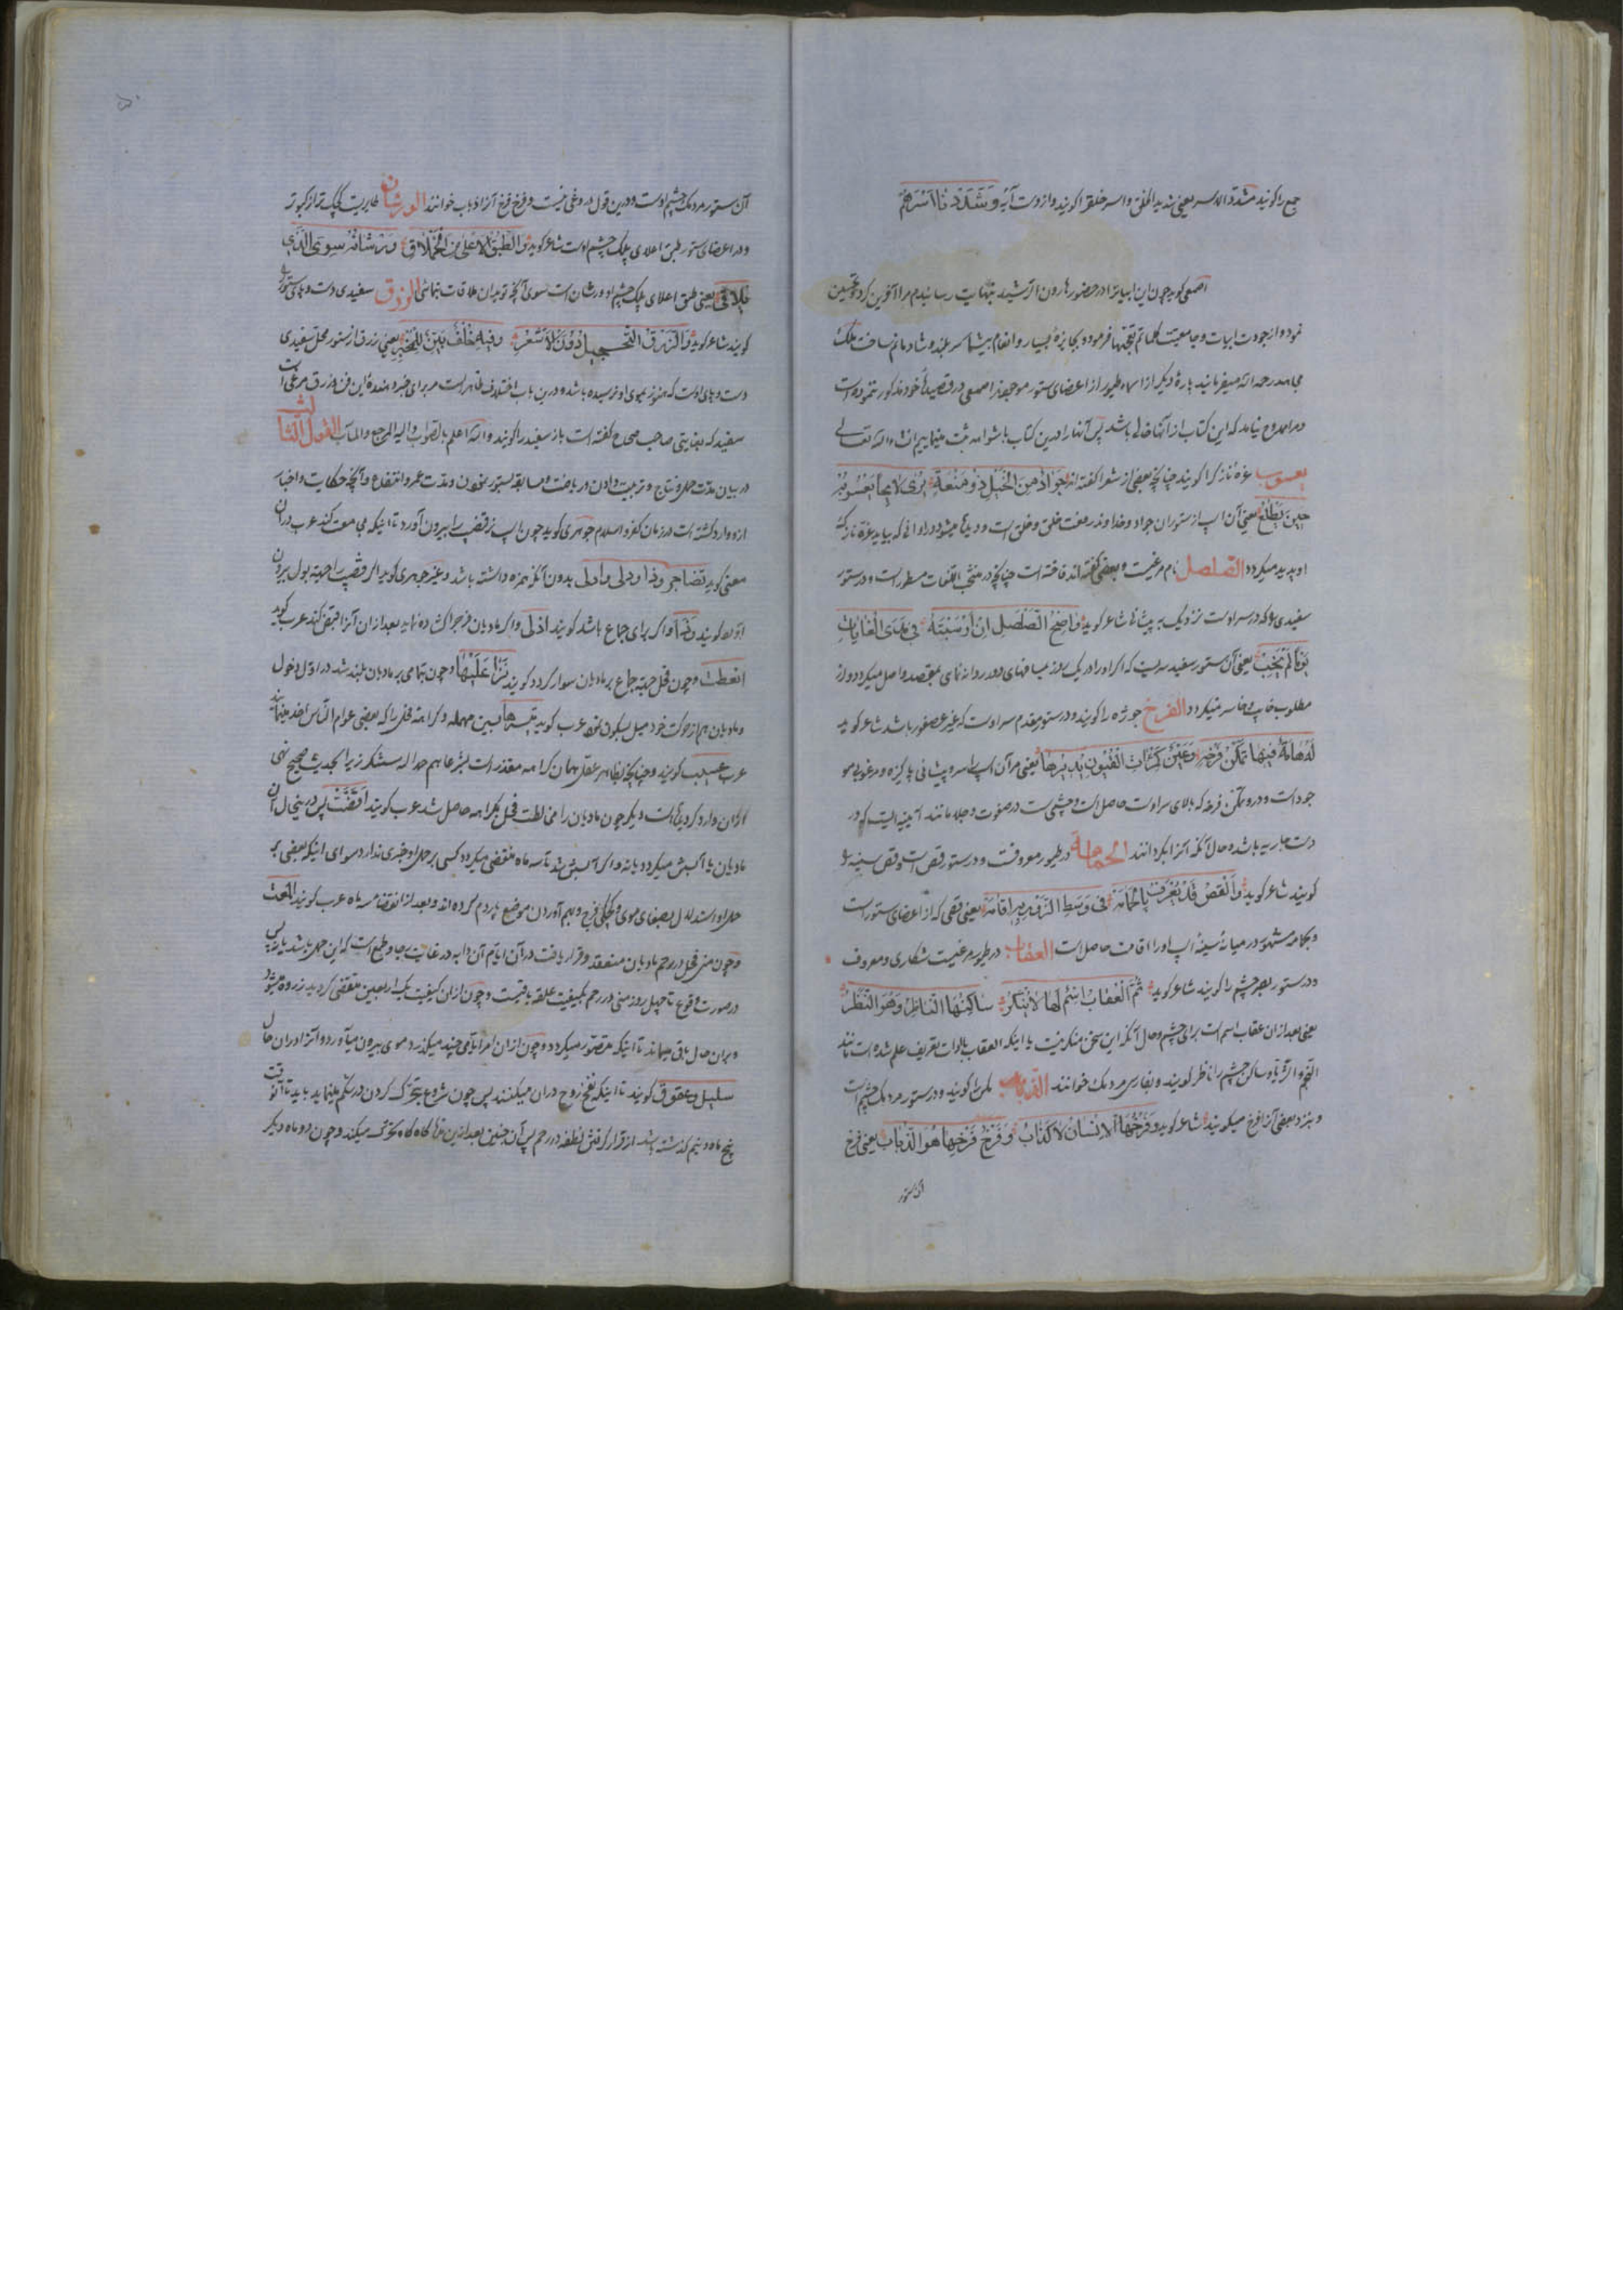 جمع را کویند مشدد الاسر یعنی شدید الخلق و اسر خلق را کویند و ازوست آیه و شددنا اسرهم
اصمعی کوید چون این ابیات را در حضور هارون الرشید بنهایت رسانیدم مرا آفرین کرد و تحسین
نمود و از جودت ابیات و جامعیت کلماتم تعجبها فرمود و بجایزهٔ بسیار و انعام بیشمار سر بلند و شادمانم ساخت ملک
مجاهد رحمه الله میفرماید پارهٔ دیکر از اسماء طیور از اعضای ستور موجودند اصمعی در قصیدهٔ خود مذکور ننموده است
و مرا ممدوح نیامد که این کتاب از آنها خالی باشد پس آنها را درین کتاب با شواهد ثبت مینماییم ان شاء الله تعالی
یعسوب غرهٔ نازک را کویند چنانچه بعضی از شعرا کفته اند جواد من الخیل ذو منعة یری لایحا یعسوبه
حین یطلع یعنی آن اسپ از ستوران جواد و خداوند رفعت خلق و خلق است و دیده میشود در اوانی که بیاید غرهٔ نازک
او پدید میکردد الصلصل نام مرغیست و بعضی کفته اند فاخته است چنانچه در منتخب اللغات مسطور است و در ستور
سفیدی را که در سر اوست نزدیک به پیشانی شاعر کوید واضح الصلصل ان ارسبته فی مدی الغایات
یوما لم یخب یعنی آن ستور سفید سریست که اکر او را در یک روز بمسافتهای دور روانه نمای بمقصد واصل میکردد و از
مطلوب خایب و خاسر نمیکردد الفرخ جوژه را کویند و در ستور مقدم سر اوست که غیر عصفور باشد شاعر کوید
له هامة فیها تمکن فرخه وعین کمرات القیون یدیرها یعنی مر آن اسپ را سر و پیشانی پاکیزه و مرغوب با مو
جود است و درو متمکن فرخه که بالای سر اوست حاصل است و چشمیست در صفوت و جلا مانند آیینه ایست که در
دست جاریه باشد و حال آنکه آنرا بکرداند الحمامة در طیور معروفست و در ستور قص است و قص سینه را
کویند شاعر کوید والقص قد یعرف بالحمامه فی وسط الزور به اقامه یعنی قصی که از اعضای ستور است
و بحمامه مشهور در میانهٔ سینهٔ اسپ او را اقامت حاصل است العقاب در طیور مرغیست شکاری و معروف
و در ستور بصر چشم را کویند شاعر کوید ثم العقاب اسم لها لا ینکر ساکنها الناظر وهو النظر
یعنی بعد از ان عقاب اسم است برای چشم و حال آنکه این سخن منکر نیست یا اینکه العقاب بالات تعریف علم شده است مانند
النجم و الثریا و ساکن چشم را ناظر کویند و بفارسی مردمک خوانند الذباب مکس را کویند و در ستور مردمک چشم است
و بنزد بعضی آنرا فرخ میکویند شاعر کوید وفرخها الانسان لا کذاب وفرخ فرخها هو الذباب یعنی فرخ
آن ستور
آن ستور مردمک چشم اوست و درین قول دروغی نیست و فرخ فرخ آنرا ذباب خوانند الورشان طایریست کوچک تر از کبوتر
و در اعضای ستور طبق اعلای پلک چشم اوست شاعر کوید والطبق الاعلی من الحملاق ورشانه سوی الذی
یلاقی یعنی طبق اعلای پلک چشم او ورشان است سوی آنچه تو بدان ملاقات بنمائی الزرق سفیدی دست و پای ستور را
کویند شاعر کوید والزرق التحجیل دون الاشعر وفیه خلف بین للمخبر یعنی زرق از ستور محل سفیدی
دست و پای اوست که هنوز بموی او نرسیده باشد و درین باب اختلاف ظاهر است مر برای خبر دهندهٔ این فن و زرق مرغی است
سفید که بغایتی صاحب صحاح کفته است باز سفید را کویند والله اعلم بالصواب والیه المرجع والمآب القول الثالث
در بیان مدت حمل و نتاج و تربیت دادن و ریاضت و مسابقه بستور نمودن و مدت عمر و انتفاع و آنچه حکایت و اخبار
ازو وارد کشته است در زمان کفر و اسلام جوهری کوید چون اسپ نر قضیب را بیرون آورد تا اینکه مجامعت کند عرب در آن
معنی کوید بدون آنکه همزه داشته باشد و غیر جوهری کوید اکر قضیب را جهة بول بیرون
آورد کویند و اکر برای جماع باشد کویند ادلی و اکر مادیان فرج را کشاده نماید بعد از ان آنرا قبض کند عرب کوید
انعظت و چون فحل جهة جماع بر مادیان سوار کردد کویند نزا علیها و چون بتمامی بر مادیان بلند شد در اول دخول
و مادیان هم از حرکت خود میل بسکون نمود عرب کوید بسین مهمله و کراهة فحل را که بعضی عوام الناس اخذ مینمایند
عرب عسیب کویند و چنانچه بظاهر عقل همان کراهه مقدر است
کاران وارد کردیده است دیکر چون مادیان را مخالطت فحل بکراهه حاصل شد عرب کویند اقضت پس درینحال آن
مادیان یا آبستن میکردد یا نه و اکر آبستن شد تا سه ماه منقضی میکردد کسی بر حمل او خبری ندارد سوای اینکه بعضی بر
حمل او استدلال بصفای موی و خشکی فرج و بهم آوردن موضع پاردم کرده اند و بعد از انقضاء سه ماه عرب کویند المحت
و چون منی فحل در رحم مادیان منعقد و قرار یافت در آن ایام آن دابه در غایت رجا و طمع است که این حمل باشد یا نه پس
در صورت وقوع تا چهل روز منی در رحم بکیفیت علقه باقیست و چون از ان کیفیت یک اربعین منقضی کردید
و بران حال باقی میماند تا اینکه متصور میکردد و چون ازان امر ایامی چند میکذرد موی بیرون میآورد و آنرا در ان حال
سلیل و عقوق کویند تا اینکه نفخ روح دران میکنند پس چون شروع بتحرک کردن در شکم مینماید باید تا آنوقت
پنج ماه و نیم کذشته باشد از قرار کرفتن نطفه در رحم پس آن جنین بعد ازین کاه کاه تحرک میکند و چون دو ماه دیکر